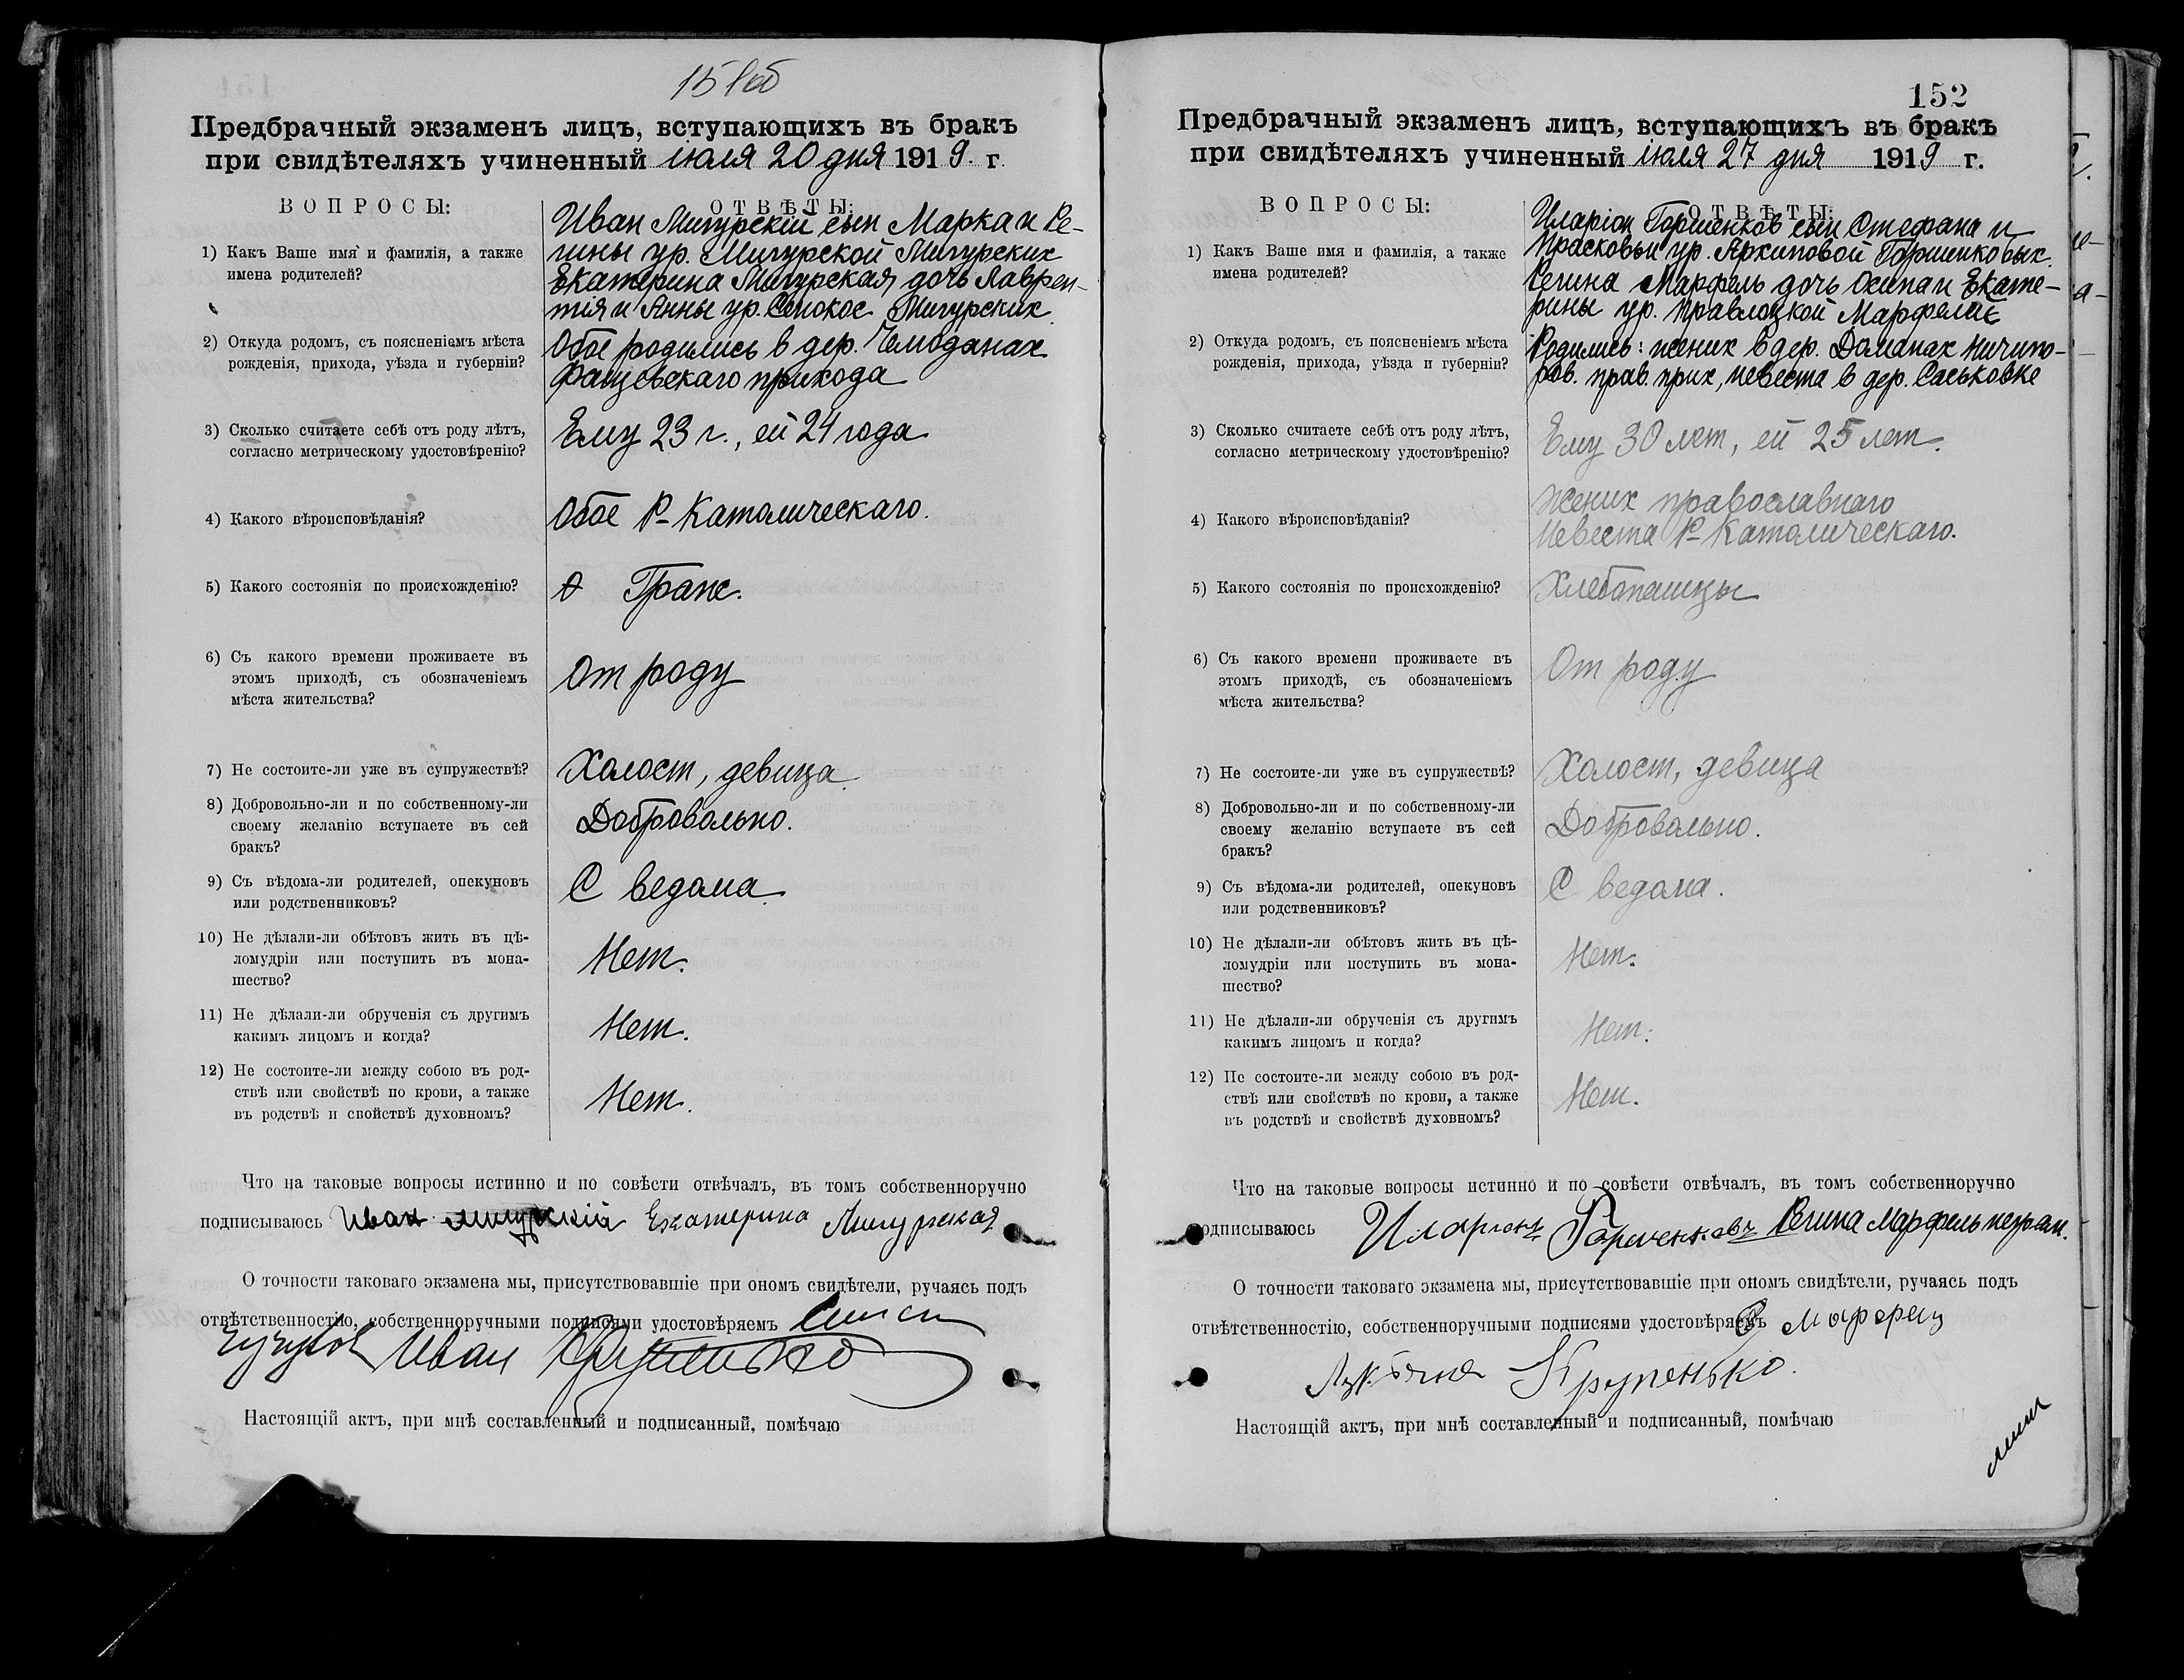 151об
Предбрачный экзаменъ лицъ, вступающихъ въ бракъ
при свидѣтеляхъ учиненный іюля 20 дня 1919. г.
ВОПРОСЫ:
ОТВѢТЫ:
1) Какъ Ваше имя и фамилія, а также
имена родителей?
Иван Мигурскій сын Марка и Ре-
гины ур. Мигурской Мигурских
Екатерина Мигурская дочь Лаврен-
тія и Анны ур. Сенокос Мигурских
2) Откуда родомъ, съ поясненіемъ мѣста
рожденія, прихода, уѣзда и губерніи?
Обое родились в дер. Чемоданах
Фащевскаго прихода
3) Сколько считаете себѣ отъ роду лѣтъ,
согласно метрическому удостовѣренію?
Ему 23 г., ей 24 года
4) Какого вѣроисповѣданія?
Обое Р-Католическаго.
5) Какого состоянія по происхожденію?
Граж.
6) Съ какого времени проживаете въ
этомъ приходѣ, съ обозначеніемъ
мѣста жительства?
От роду
7) Не состоите-ли уже въ супружествѣ?
Холост, девица.
8) Добровольно-ли и по собственному-ли
своему желанію вступаете въ сей
бракъ?
Добровольно.
9) Съ вѣдома-ли родителей, опекуновъ
или родственниковъ?
С ведома.
10) Не дѣлали-ли обѣтовъ жить въ цѣ-
ломудріи или поступить въ мона-
шество?
Нет.
11) Не дѣлали-ли обрученія съ другимъ
какимъ лицомъ и когда?
Нет.
12) Не состоите-ли между собою въ род-
ствѣ или свойствѣ по крови, а также
въ родствѣ и свойствѣ духовномъ?
Нет.
Что на таковые вопросы истинно и по совѣсти отвѣчалъ, въ томъ собственноручно
подписываюсь Иван Мигурскій Екатерина Мигурская
О точности таковаго экзамена мы, присутствовавшіе при ономъ свидѣтели, ручаясь подъ
отвѣтственностію, собственноручными подписями удостовѣряемъ
Иван
Настоящій актъ, при мнѣ составленный и подписанный, помѣчаю
152
Предбрачный экзаменъ лицъ, вступающихъ въ бракъ
при свидѣтеляхъ учиненный іюля 27 дня 1919 г.
ВОПРОСЫ:
ОТВѢТЫ:
1) Какъ Ваше имя и фамилія, а также
имена родителей?
Иларіон Горшенков сын Стефана и
Прасковьи ур. Архиповой Горшенковых.
Регина Марфель дочь Осипа и Екате-
рины ур. Правлоцкой
2) Откуда родомъ, съ поясненіемъ мѣста
рожденія, прихода, уѣзда и губерніи?
Родились: жених в дер. Доманах Ничипо-
ров. прав. прих, невеста в дер. Саськовке
3) Сколько считаете себѣ отъ роду лѣтъ,
согласно метрическому удостовѣренію?
Ему 30 лет, ей 25 лет.
4) Какого вѣроисповѣданія?
Жених православнаго
Невеста Р-Католическаго.
5) Какого состоянія по происхожденію?
Хлебопашцы
6) Съ какого времени проживаете въ
этомъ приходѣ, съ обозначеніемъ
мѣста жительства?
От роду
7) Не состоите-ли уже въ супружествѣ?
Холост, девица
8) Добровольно-ли и по собственному-ли
своему желанію вступаете въ сей
бракъ?
Добровольно.
9) Съ вѣдома-ли родителей, опекуновъ
или родственниковъ?
С ведома.
10) Не дѣлали-ли обѣтовъ жить въ цѣ-
ломудріи или поступить въ мона-
шество?
Нет.
11) Не дѣлали-ли обрученія съ другимъ
какимъ лицомъ и когда?
Нет.
12) Не состоите-ли между собою въ род-
ствѣ или свойствѣ по крови, а также
въ родствѣ и свойствѣ духовномъ?
Нет.
Что на таковые вопросы истинно и по совѣсти отвѣчалъ, въ томъ собственноручно
подписываюсь Иларіонъ Горшенковъ Регина Марфель неграм.
О точности таковаго экзамена мы, присутствовавшіе при ономъ свидѣтели, ручаясь подъ
отвѣтственностію, собственноручными подписями удостовѣряемъ
Крупенько.
Настоящій актъ, при мнѣ составленный и подписанный, помѣчаю